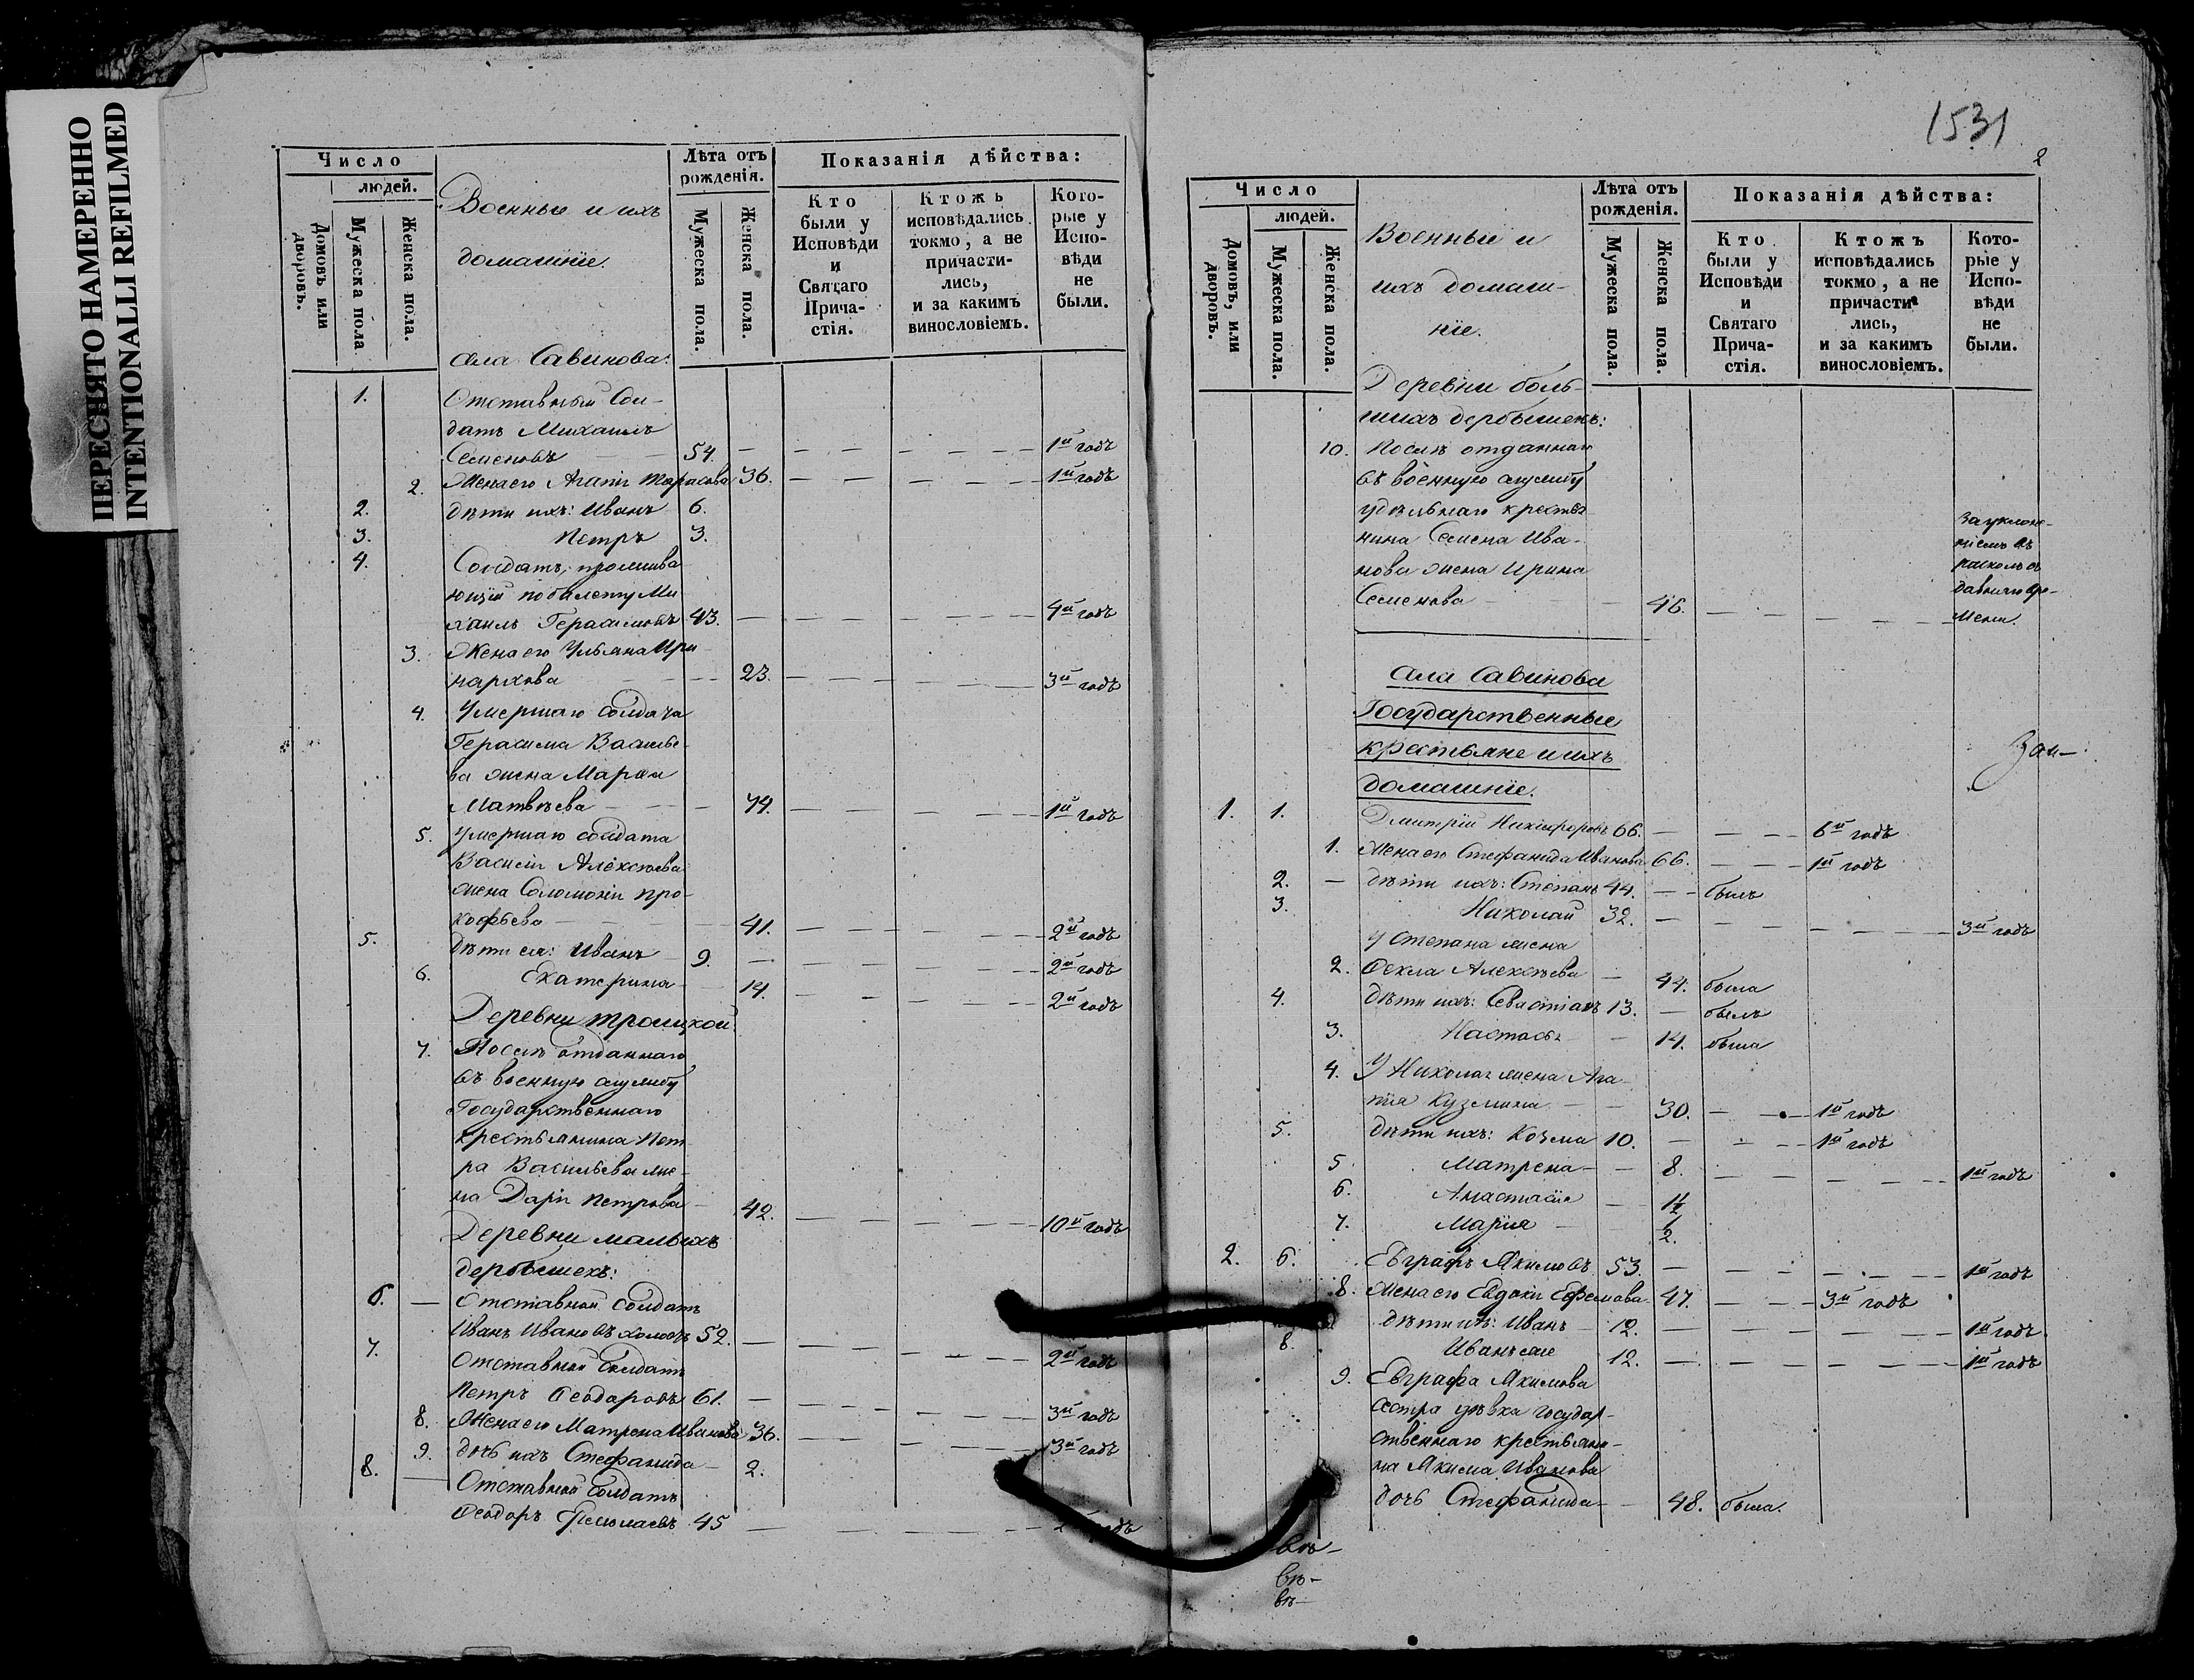 ПЕРЕСНЯТО НАМЕРЕННО
INTENTIONALLI REFILMED
Число
людей.
Домовъ или дворовъ.
Мужеска пола
Женска пола.
Военные и ихъ
домашніе.
Лѣта отъ рожденія.
Мужеска пола.
Женска пола.
Показанія дѣйства:
Кто были у Исповѣди и Святаго Прича-стія.
Ктожь исповѣдались токмо, а не причасти-лись, и за какимъ винословіемъ.
Кото-рые у Испо-вѣди не были.
села Савинова:
1. Отставный Сол-
датъ Михаилъ
Семеновъ 54. 1й годъ
2. Жена его Агапія Тарасова 36. 1й годъ
2. дѣти ихъ: Иванъ 6.
3. Петръ 3.
4. Солдатъ, прожива
ющій по билету Ми
хаилъ Герасимовъ 43. 4й годъ
3. Жена его Ульяна Ири
нархова 23. 3й годъ
4. Умершаго солдата
Герасима Василье-
ва жена Марѳа
Матвѣева 74. 1й годъ
5. Умершаго солдата
Василія Алексѣева
жена Соломонія Про-
кофьева 41. 2й годъ
5. дѣти ея: Иванъ 9. 2й годъ
6. Екатерина 14. 2й годъ
Деревни Троицкой
7. Послѣ отданнаго
въ военную службу
Государственнаго
крестьянина Пет-
ра Васильева же-
на Дарія Петрова 42. 10й годъ
Деревни малыхъ
дербышекъ:
6. Отставной Солдатъ
Иванъ Ивановъ холостъ 52. 2й годъ
7. Отставной Солдатъ
Петръ Ѳеодоровъ 61. 3й годъ
8. Жена его Матрена Иванова 36. 3й годъ
9. дочь ихъ Стефанида 2.
8. Отставной Солдатъ
Ѳеодоръ 45 годъ
1531
2
Число
людей.
Домовъ, или дворовъ.
Мужеска пола.
Женска пола.
Военные и
ихъ домаш-
ніе.
Лѣта отъ рожденія.
Мужеска пола.
Женска пола.
Показанія дѣйства:
Кто были у Исповѣди и Святаго Прича-стія.
Ктожъ исповѣдались токмо, а не причасти лись, и за какимъ винословіемъ.
Кото-рые у Испо-вѣди не были.
Деревни боль-
шихъ дербышекъ:
10. Послѣ отданнаго
въ военную службу
удѣльнаго крестья
нина Семена Ива-
нова жена Ирина
Семенова 46.
За уклоне-
ніемъ въ
расколъ съ
давняго вре-
мени.
села Савинова
Государственные
крестьяне и ихъ
домашніе.
1. 1. Дмитрій Никифоровъ 66. 6й годъ
1. Жена его Стефанида Иванова 66. 1й годъ
2. дѣти ихъ: Степанъ 44. былъ
3. Николай 32. 3й годъ
У Степана жена
2. Ѳекла Алексѣева 44. была
4. дѣти ихъ: Севастіанъ 13. былъ
3. Настасья 14. была
4. У Николая жена Ага-
пія Кузмина 30. 1й годъ
5. дѣти ихъ: Козма 10. 1й годъ
5. Матрена 8. 1й годъ
6. Анастасія
7. Марія 1/2.
2. 6. Евграфъ Якимовъ 53. 1й годъ
8. Жена его Евдокія Ефимова 47. 3й годъ
дѣти ихъ: Иванъ 12. 1й годъ
8. Иванъ же 12. 1й годъ
9. Евграфа Якимова
сестра дѣвка государ-
ственнаго крестьяни-
на Якима Иванова
дочь Стефанида 48. была.